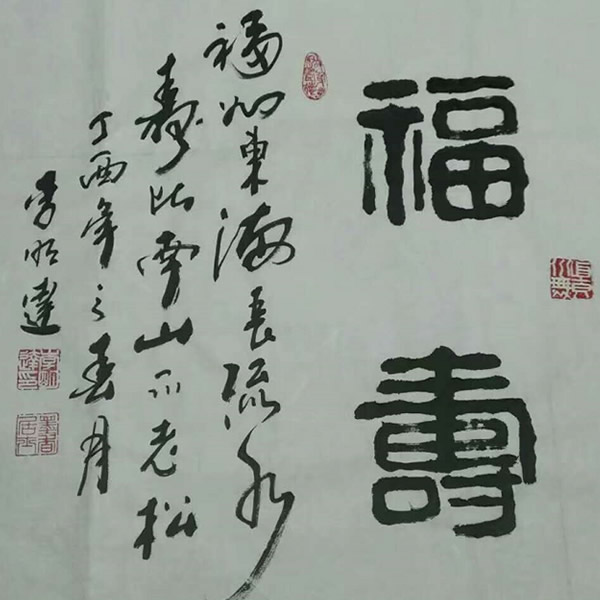 福壽
福如東海長流水
壽比南山不老松
丁酉年之春月
李明達